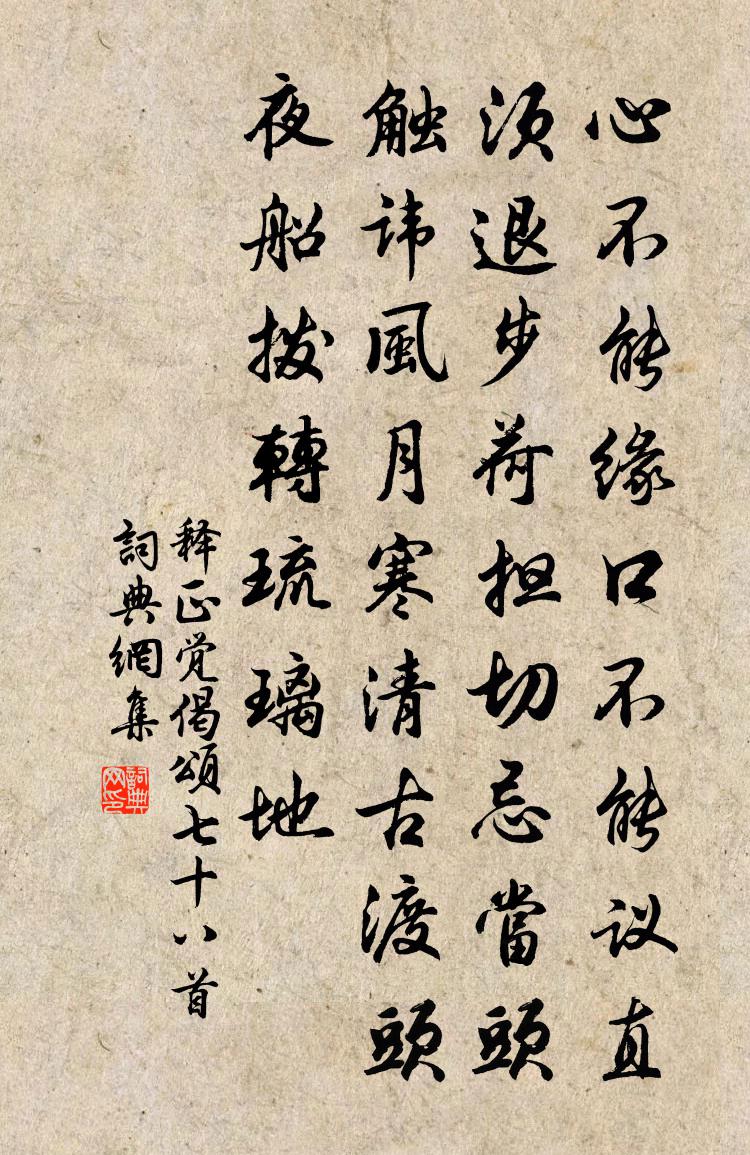 心不能缘口不能议直
须退步荷担切忌當頭
触讳風月寒清古渡頭
夜船拨轉琉璃地
释正觉偈頌七十八首
詞典網集
詞典网印